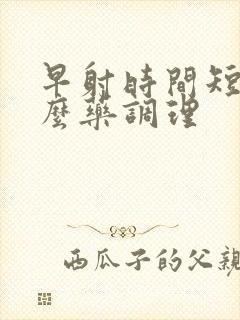 早射時間短
麼藥調理
西瓜子的父親